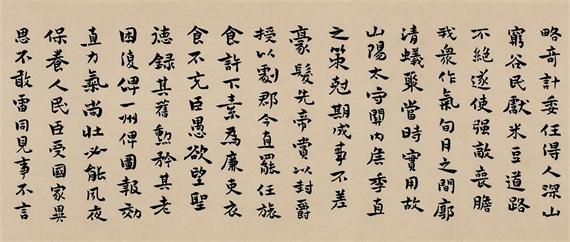 略奇計委任得人深山
窮谷民獻米豆道路
不絶遂使强敵喪膽
我衆作氣旬月之間廓
清蟻聚當時實用故
山陽太守關内侯季直
之策尅期成事不差
豪髮先帝賞以封爵
授以劇郡今直罷任旅
食許下素為廉吏衣
食不充臣愚欲望聖
德録其舊勲矜其老
困復俾一州俾圖報効
直力氣尚壯必能夙夜
保養人民臣受國家異
恩不敢雷同見事不言